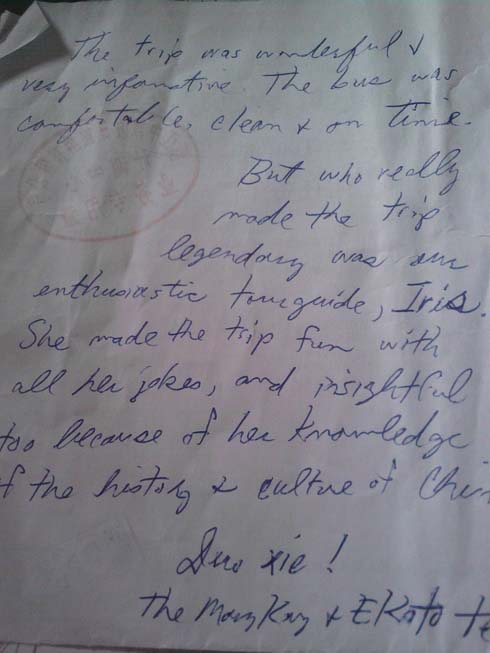 The trip was wonderful &
very informative. The bus was
comfortable, clean & on time.
But who really
made the trip
legendary was our
enthusiastic tourguide, Iris.
She made the trip fun with
all her jokes, and insightful
too because of her knowledge
f the history & culture of Chin
Duo xie!
The Mary Kay & EKato te